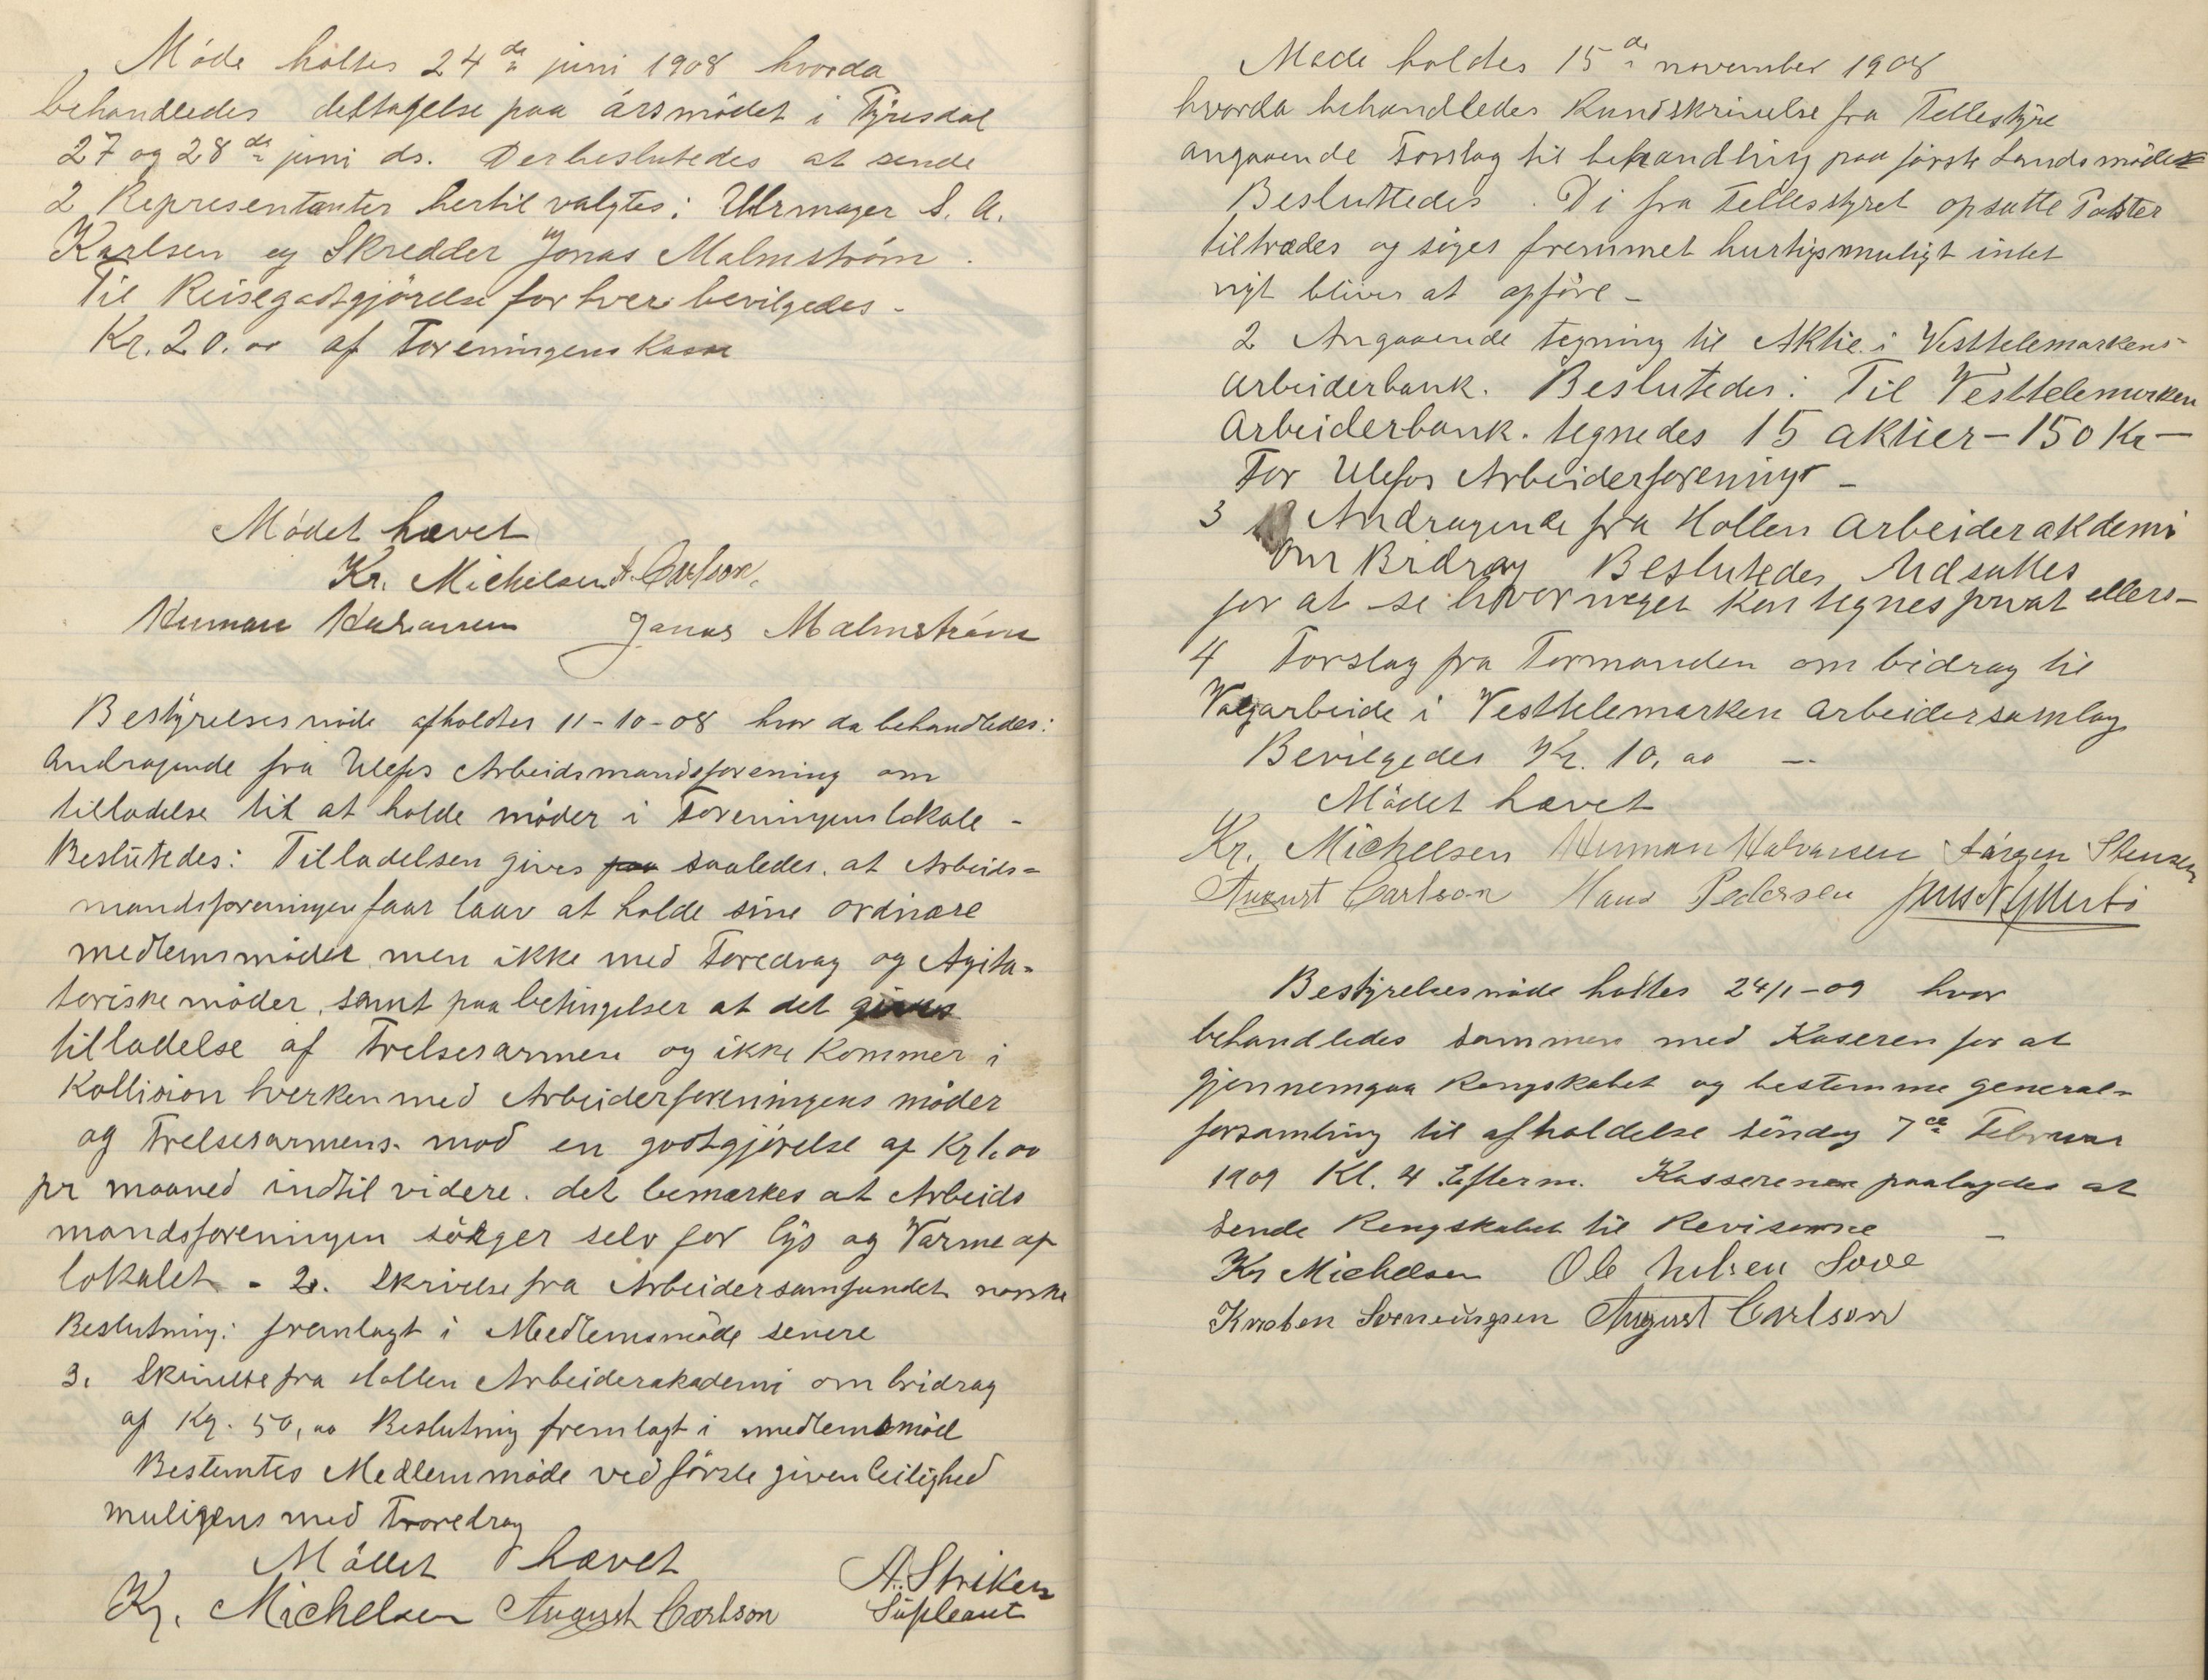 Møde holtes 24de juni 1908 hvorda
behandledes deltagelse paa årsmødet i Tyrisdal
27 og 28de juni ds. Derbeslutedes at sende
2 Representanter hertil valgtes: Uhrmager S. A.
Karlsen og Skredder Jonas Malmstrøm.
Til Reisegodtgjørelse for hver bevilgedes -
Kr. 20.00 af Foreningens Kasse
Mødet hævet
Kr. Michelsen A. Carlson.
Herman Halvorsen Jonas Malmstrøm
Bestyrelsesmøde afholdtes 11-10-08 hvor da behandledes:
Andragende fra Ulefos Arbeidsmandsforening om
tilladelse til at holde møder i Foreningens lokale -
Beslutedes: Tilladelsen gives paa saaledes. at Arbeids-
mandsforeningen faar laav at holde sine ordinære
medlemsmøder men ikke med Foredrag og Agita-
toriske møder, samt paa betingelser at det gives
tilladelse af Frelsesarmeen og ikke Kommer i
Kollision hverken med Arbeiderforeningens møder
og Frelsesarmens. mod en godtgjørelse af Kr 1.00
pr maaned indtil videre. det bemærkes at Arbeids
mandsforeningen sørger selv for lys og Varme af
lokalet - 2. Skrivelse fra Arbeidersamfundet norske
Beslutning: fremlagt i Medlemsmøde senere
3. Skrivelse fra Hollen Arbeiderakademi om bridrag
af Kr. 50,00 Beslutning fremlagt i medlemsmød
Bestemtes Medlemmøde ved første given leilighed
muligens med Foredrag
Mødet hævet A. Striken
Kr. Michelsen August Carlson Supleant
Møde holdes 15de november 1908
hvorda behandledes Rundskrivelse fra Fellestyre
angaaende Forslag til behandling paa første Landsmøde
Besluttedes. Di fra Fellesstyret opsatte Poster
tiltrædes og søges fremmet hurtigsmuligt intet
nyt bliver at opføre -
2 Angaaende tegning til Aktie i Vesttelemarkens
arbeiderbank. Beslutedes: Til Vesttelemarken
Arbeiderbank. tegnedes 15 aktier - 150 Kr -
For Ulefos Arbeiderforening -
3 Andragende fra Hollen arbeiderakdemi
om Bidrag Beslutedes Udsattes
for at se hvor meget Kan tegnes privat ellers -
4 Forslag fra Formanden om bidrag til
Valgarbeide i Vesttelemarken arbeidersamlag
Bevilgedes Kr. 10,00 -
Mødet hævet
Kr. Michelsen Herman Halvorsen Jørgen Stensen
August Carlson Hans Pedersen
Bestyrelsesmøde holtes 24/1-09 hvor
behandledes sammen med Kaseren for at
gjennemgaa Rengskabet og bestemme general-
forsamling til afholdelse søndag 7de Februar
1909 Kl. 4 Efterm. Kasseren paalagdes at
sende Rengskabet til Revisorne -
Kr Michelsen Ole Nilsen Sove
Kresten Sveneungsen August Carlson